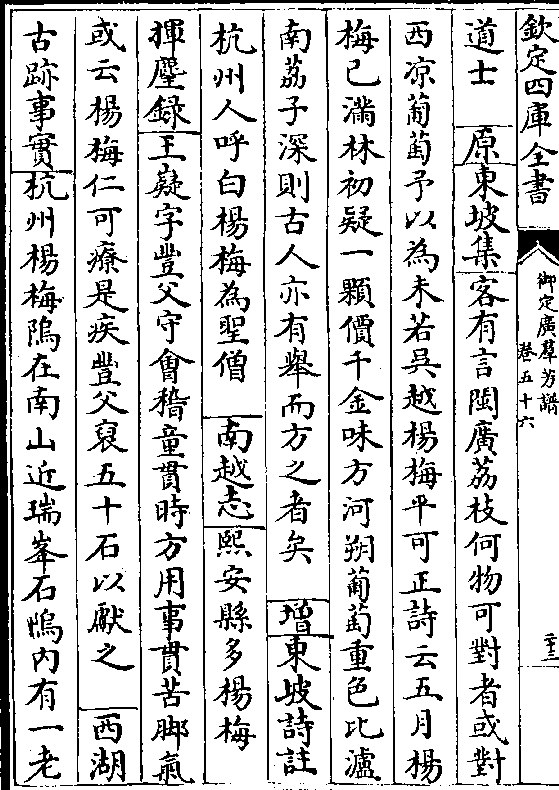 欽定四庫全書
御定廣羣芳譜
卷五十六
二十三
道士　原東坡集客有言閩廣荔枝何物可對者或對
西凉葡萄予以為未若吳越楊梅平可正詩云五月楊
梅已滿林初疑一顆價千金味方河朔葡萄重色比瀘
南荔子深則古人亦有舉而方之者矣　增東坡詩註
杭州人呼白楊梅為聖僧　南越志熙安縣多楊梅
揮麈錄王嶷字豐父守會稽童貫時方用事貫苦脚氣
或云楊梅仁可療是疾豐父裒五十石以獻之　西湖
古跡事實杭州楊梅塢在南山近瑞峯石塢内有一老